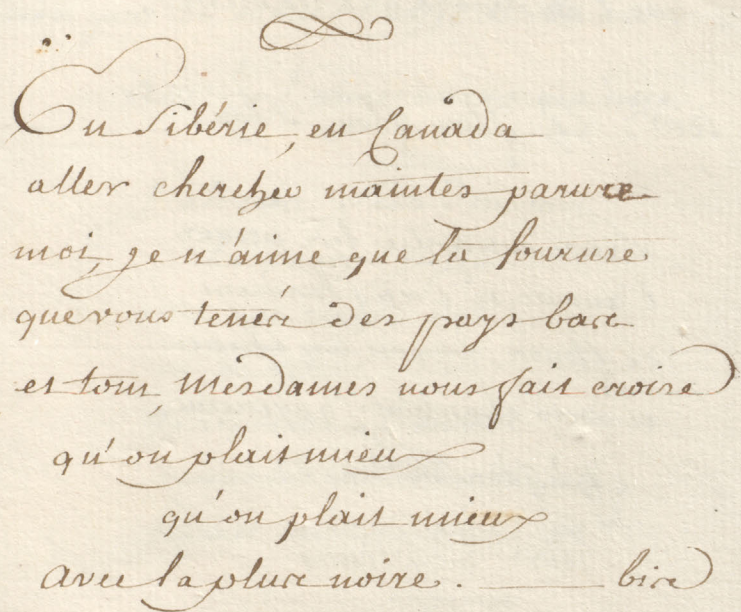 En Sibérie, en Canada
aller cherchez maintes parure
moi, je n'aime que la fourure
que vous tenéz des pays bas
et tout, mesdames nous fait croire
qu'on plait mieux
qu'on plait mieux
avec la plus noire. bis